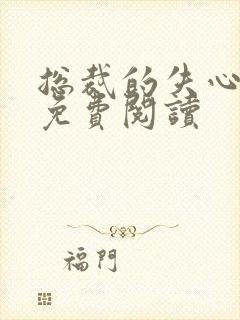 总裁的失心
免費閱讀
福門